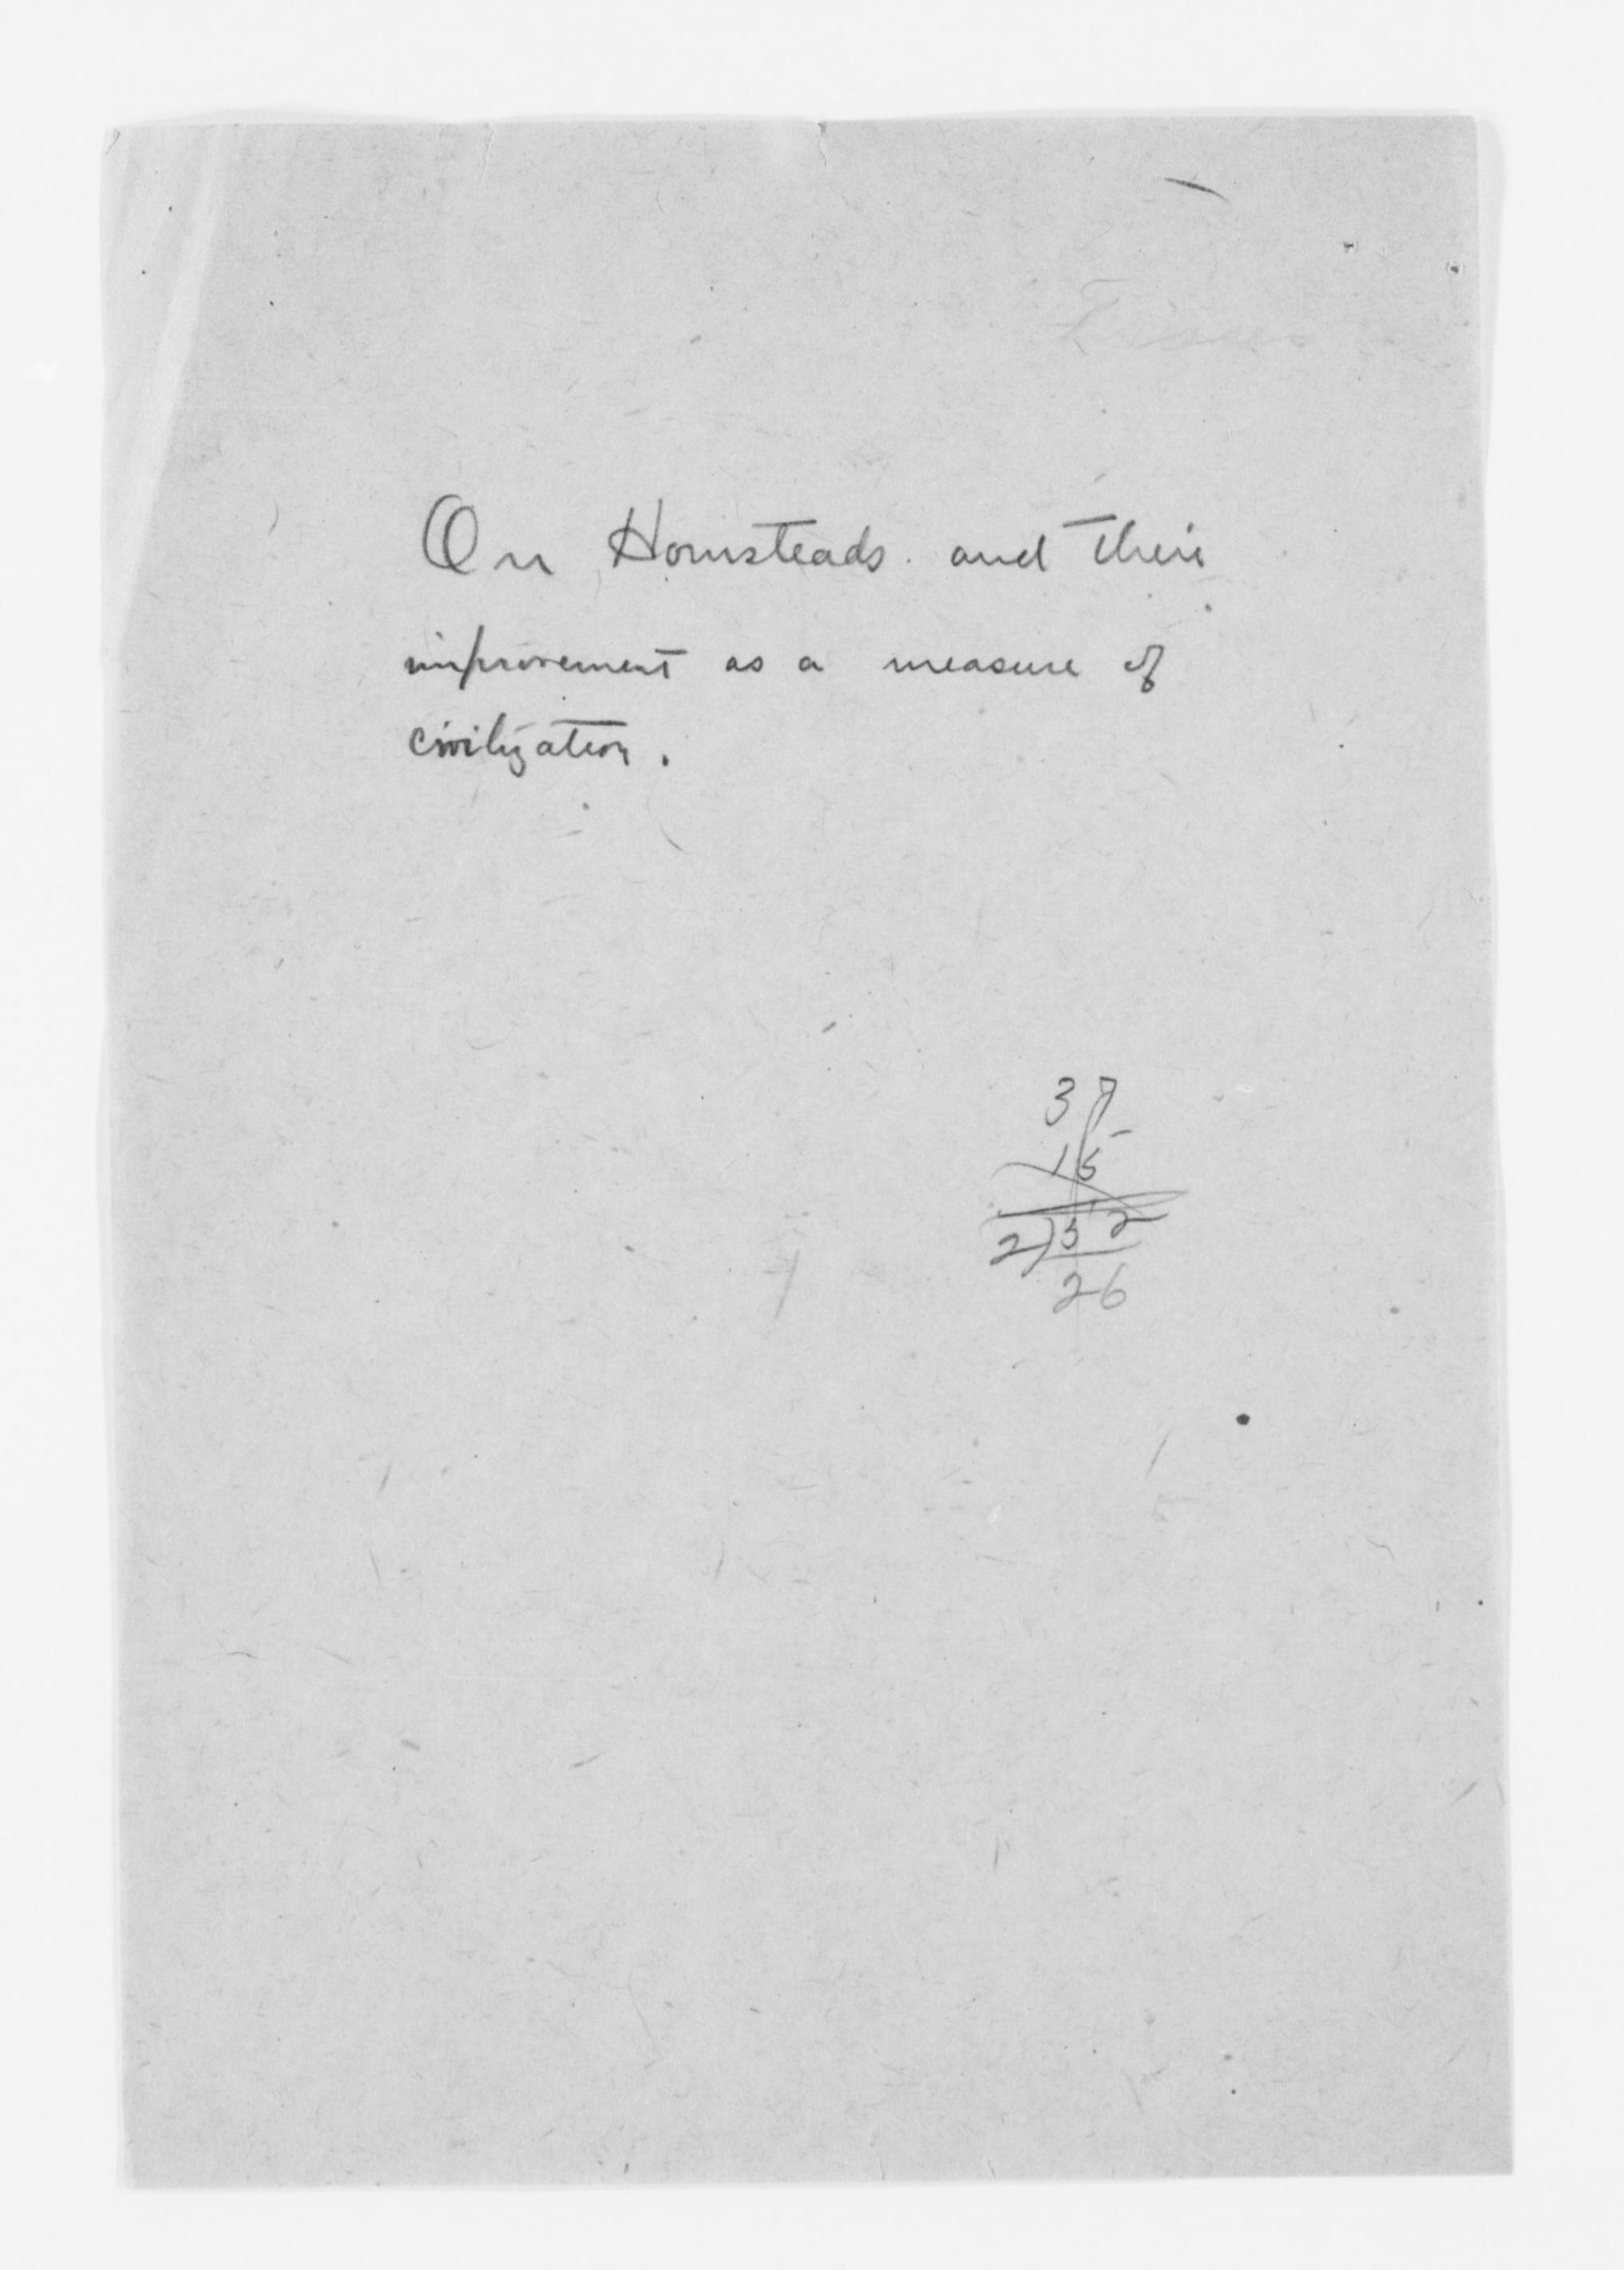 On Homsteads and their
improvement as a measure of
civilization.
37
15
2)52
26